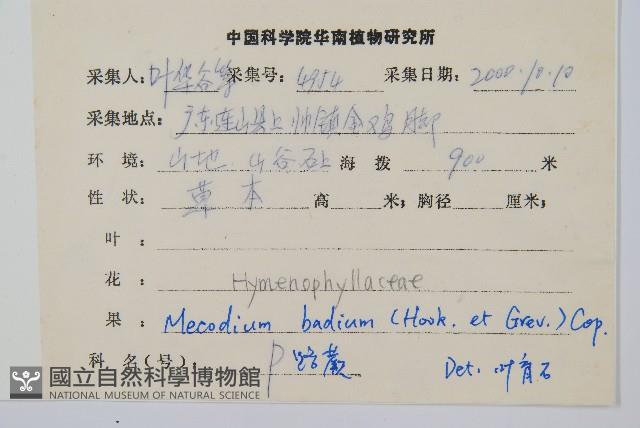 中国科学院华南植物研究所
采集人: 叶华谷等 采集号: 4954 采集日期: 2000.10.10
采集地点: 广东连山县上帅镇金鸡脚
环 境: 山地 山谷石上 海 拨 900 米
性 状: 草 本 高 米; 胸径 厘米;
叶:
花: Hymenophyllaceae
果: Mecodium badium (Hook. et Grev.) Cop.
科 名(号): 路蕨 Det. 叶育石
國立自然科學博物館
NATIONAL MUSEUM OF NATURAL SCIENCE